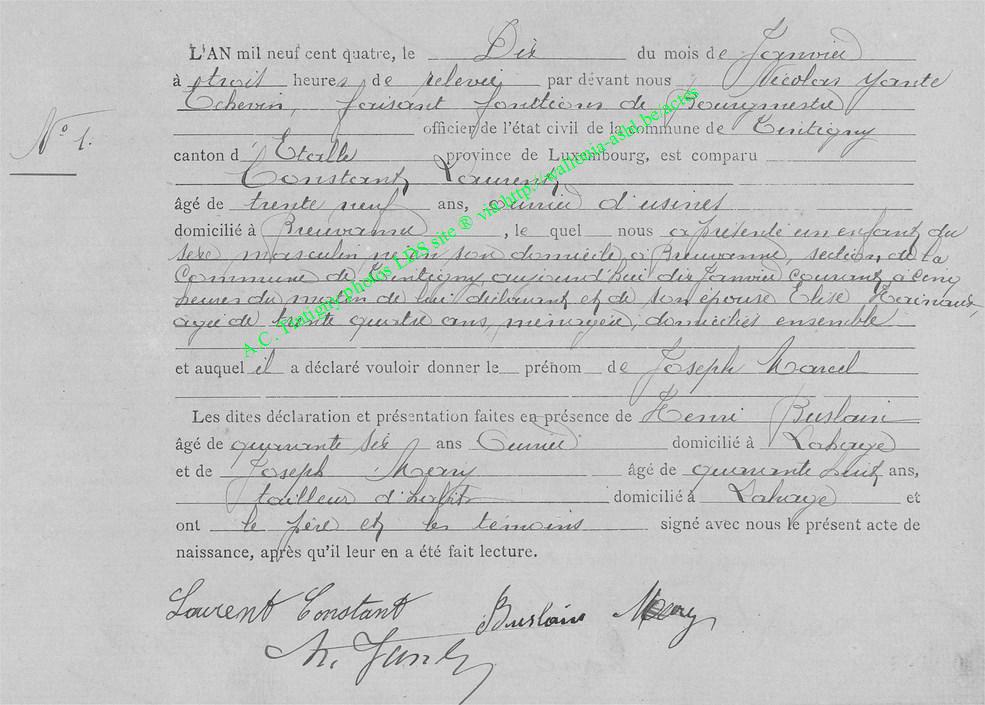 L'AN mil neuf cent quatre, le Dix du mois de Janvier
à trois heures de relevée par devant nous Nicolas Yante
Echevin, faisant fonctions de Bourgmestre
N° 1.
officier de l'état civil de la commune de Tintigny
canton d'Etalle province de Luxembourg, est comparu
Constant Laurent
âgé de trente neuf ans, ouvrier d'usines
domicilié à Breuvanne, le quel nous a présenté un enfant du
sexe masculin né en son domicile à Breuvanne, section de la
Commune de Tintigny, aujourd'hui dix Janvier courant, à cinq
heures du matin de lui déclarant et de son épouse Elise Hainaux,
agée de trente quatre ans, ménagère, domiciliés ensemble
et auquel il a déclaré vouloir donner le prénom de Joseph Marcel
Les dites déclaration et présentation faites en présence de Henri Buslain
âgé de quarante six ans Ouvrier domicilié à Lahage
et de Joseph Mery âgé de quarante huit ans,
tailleur d'habits domicilié à Lahage et
ont le père et les témoins signé avec nous le présent acte de
naissance, après qu'il leur en a été fait lecture.
Laurent Constant Buslain Mery
N. Yante
A.C. Tintigny photos LDS site ® via http://wallonia-asbl.be/actes